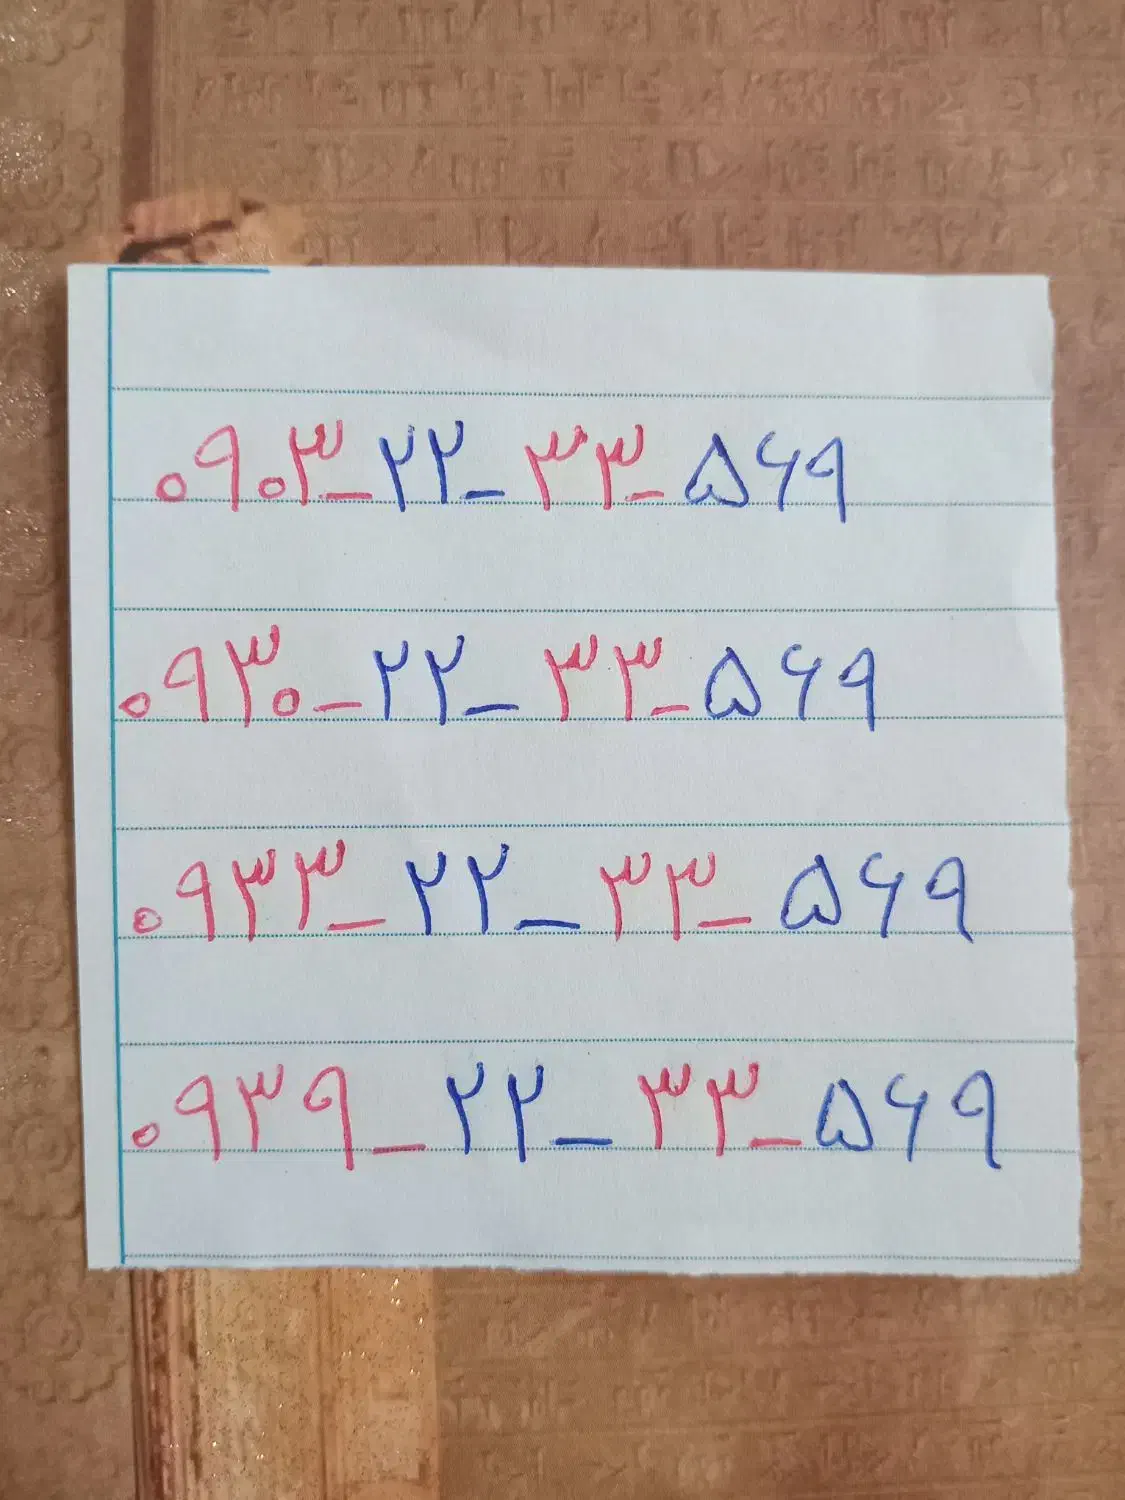 ۰۹۰۳-۲۲-۳۳-۵۶۹
۰۹۳۰-۲۲-۳۳-۵۶۹
۰۹۳۳-۲۲-۳۳-۵۶۹
۰۹۳۹-۲۲-۳۳-۵۶۹